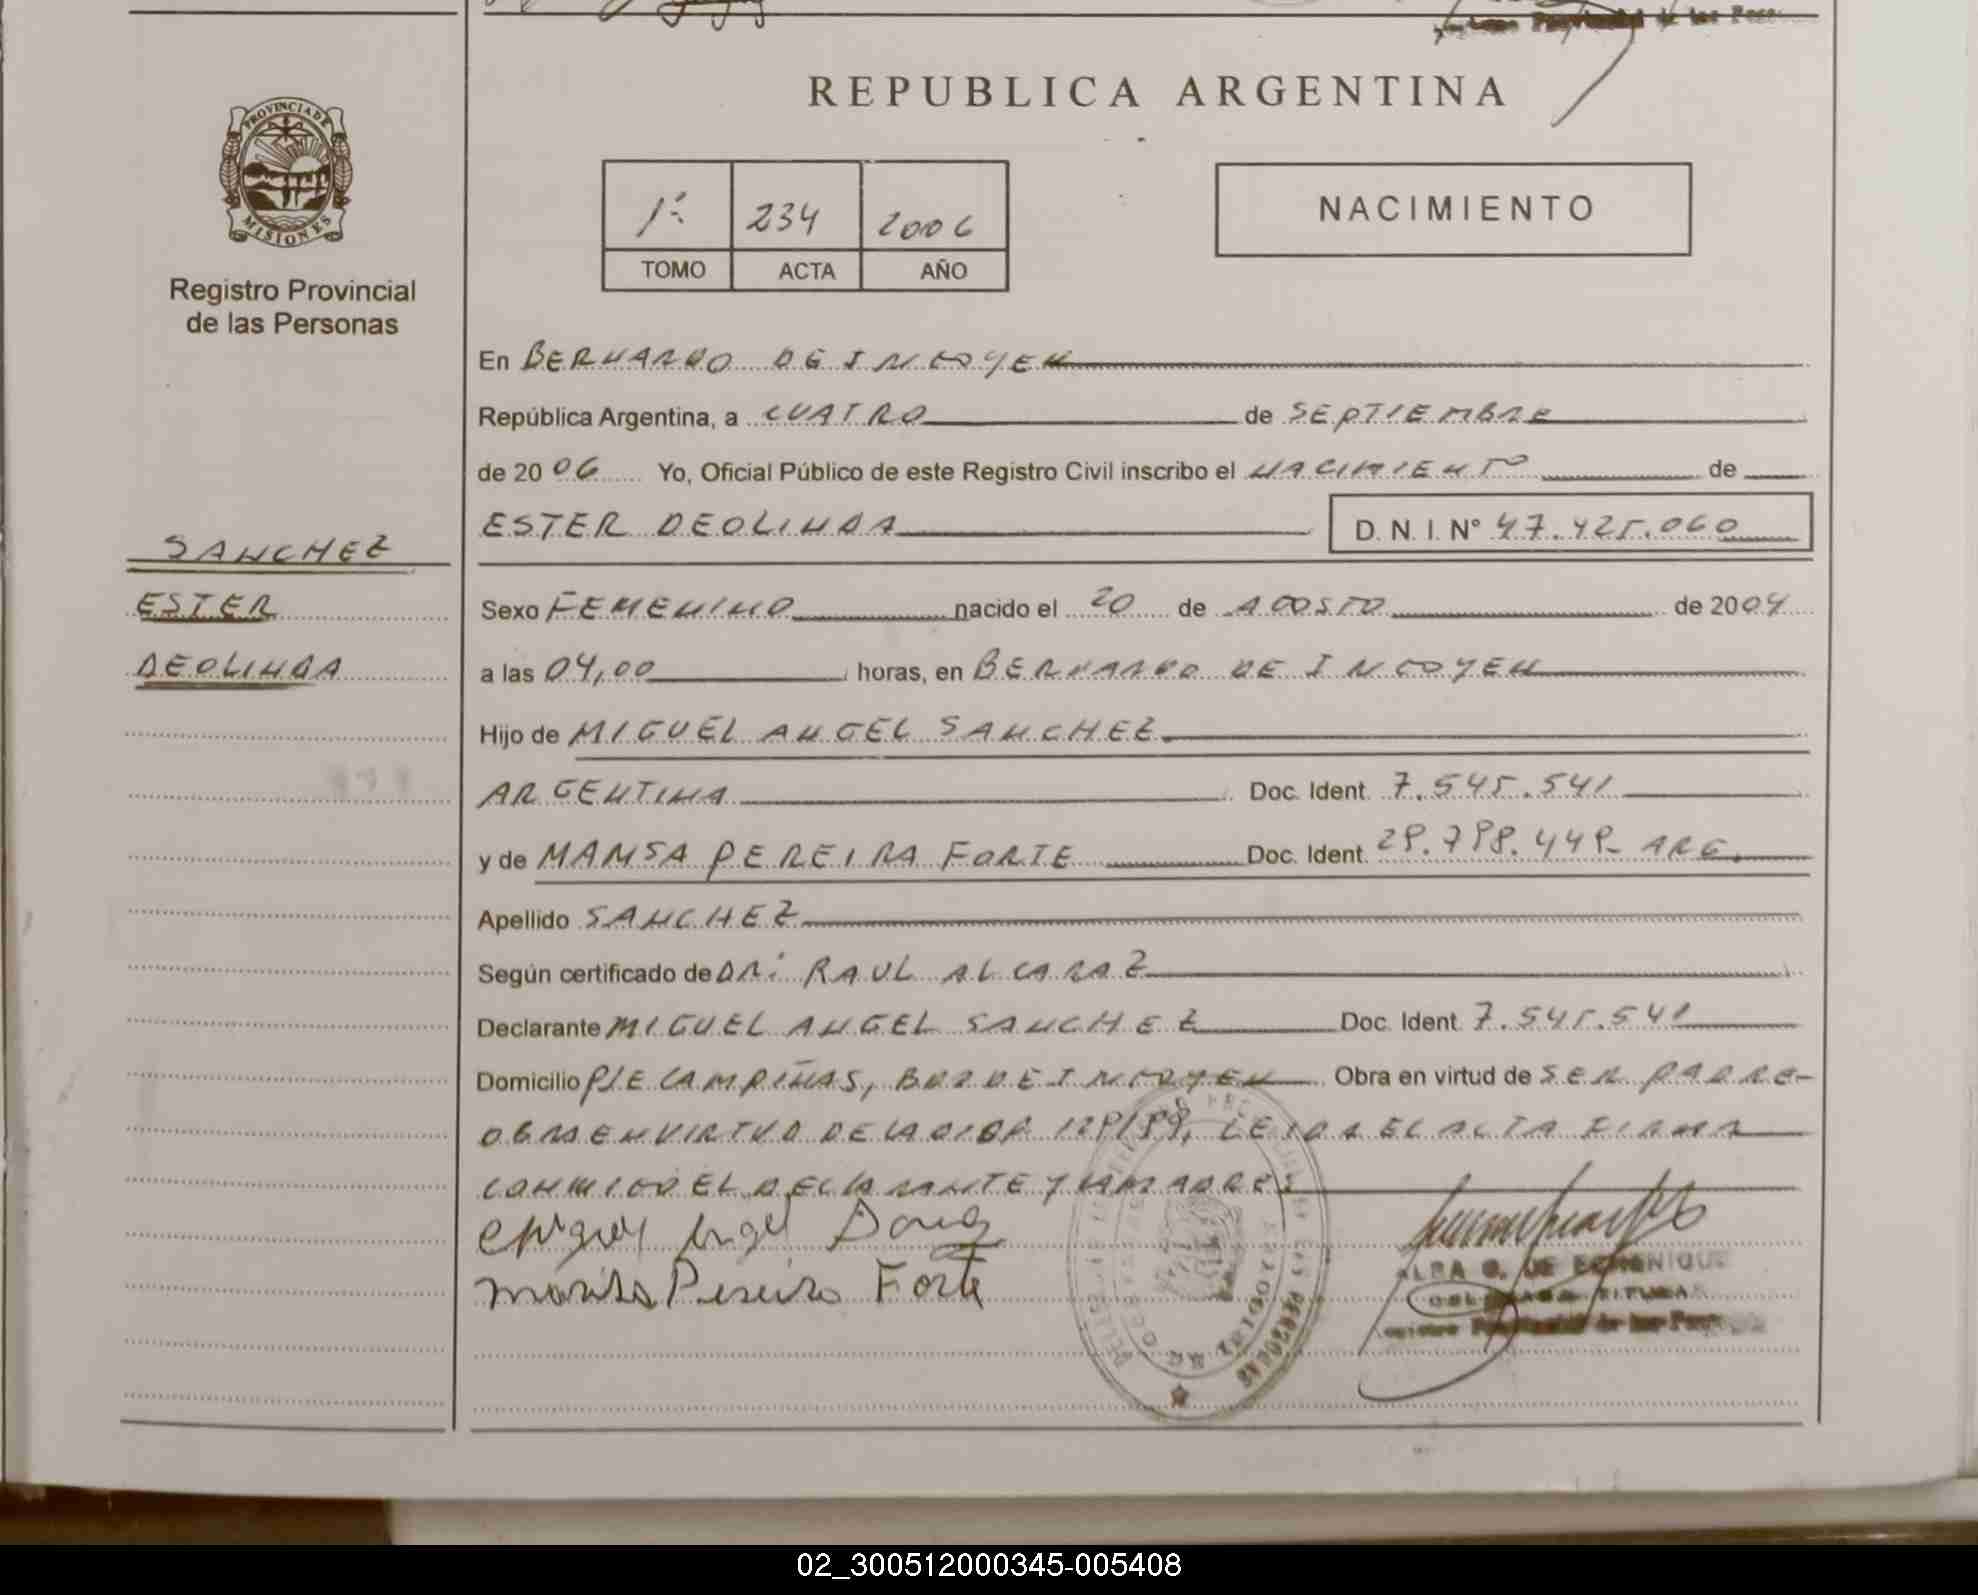 REPUBLICA ARGENTINA
PROVINCIA DE
MISIONES
Registro Provincial
de las Personas
1º 234 2006
TOMO ACTA AÑO
NACIMIENTO
En BERNARDO DE IRIGOYEN
República Argentina, a CUATRO de SEPTIEMBRE
de 2006 Yo, Oficial Público de este Registro Civil inscribo el NACIMIENTO de
ESTER DEOLINDA D. N. I. Nº 47.425.060
SANCHEZ
ESTER
DEOLINDA
Sexo FEMENINO nacido el 20 de AGOSTO de 2004
a las 04,00 horas, en BERNARDO DE IRIGOYEN
Hijo de MIGUEL ANGEL SANCHEZ
ARGENTINA Doc. Ident. 7.545.541
y de PEREIRA FORTE Doc. Ident. ARG.
Apellido SANCHEZ
Según certificado de DR: RAUL ALCARAZ
Declarante MIGUEL ANGEL SANCHEZ Doc. Ident. 7.545.541
Domicilio PJE CAMPIÑAS, Obra en virtud de SER PADRE-
OBRA EN VIRTUD DE LA LEIDA EL ACTA FIRMA
CONMIGO EL DECLARANTE Y LA MADRE.
Pereira Forte
02_300512000345-005408